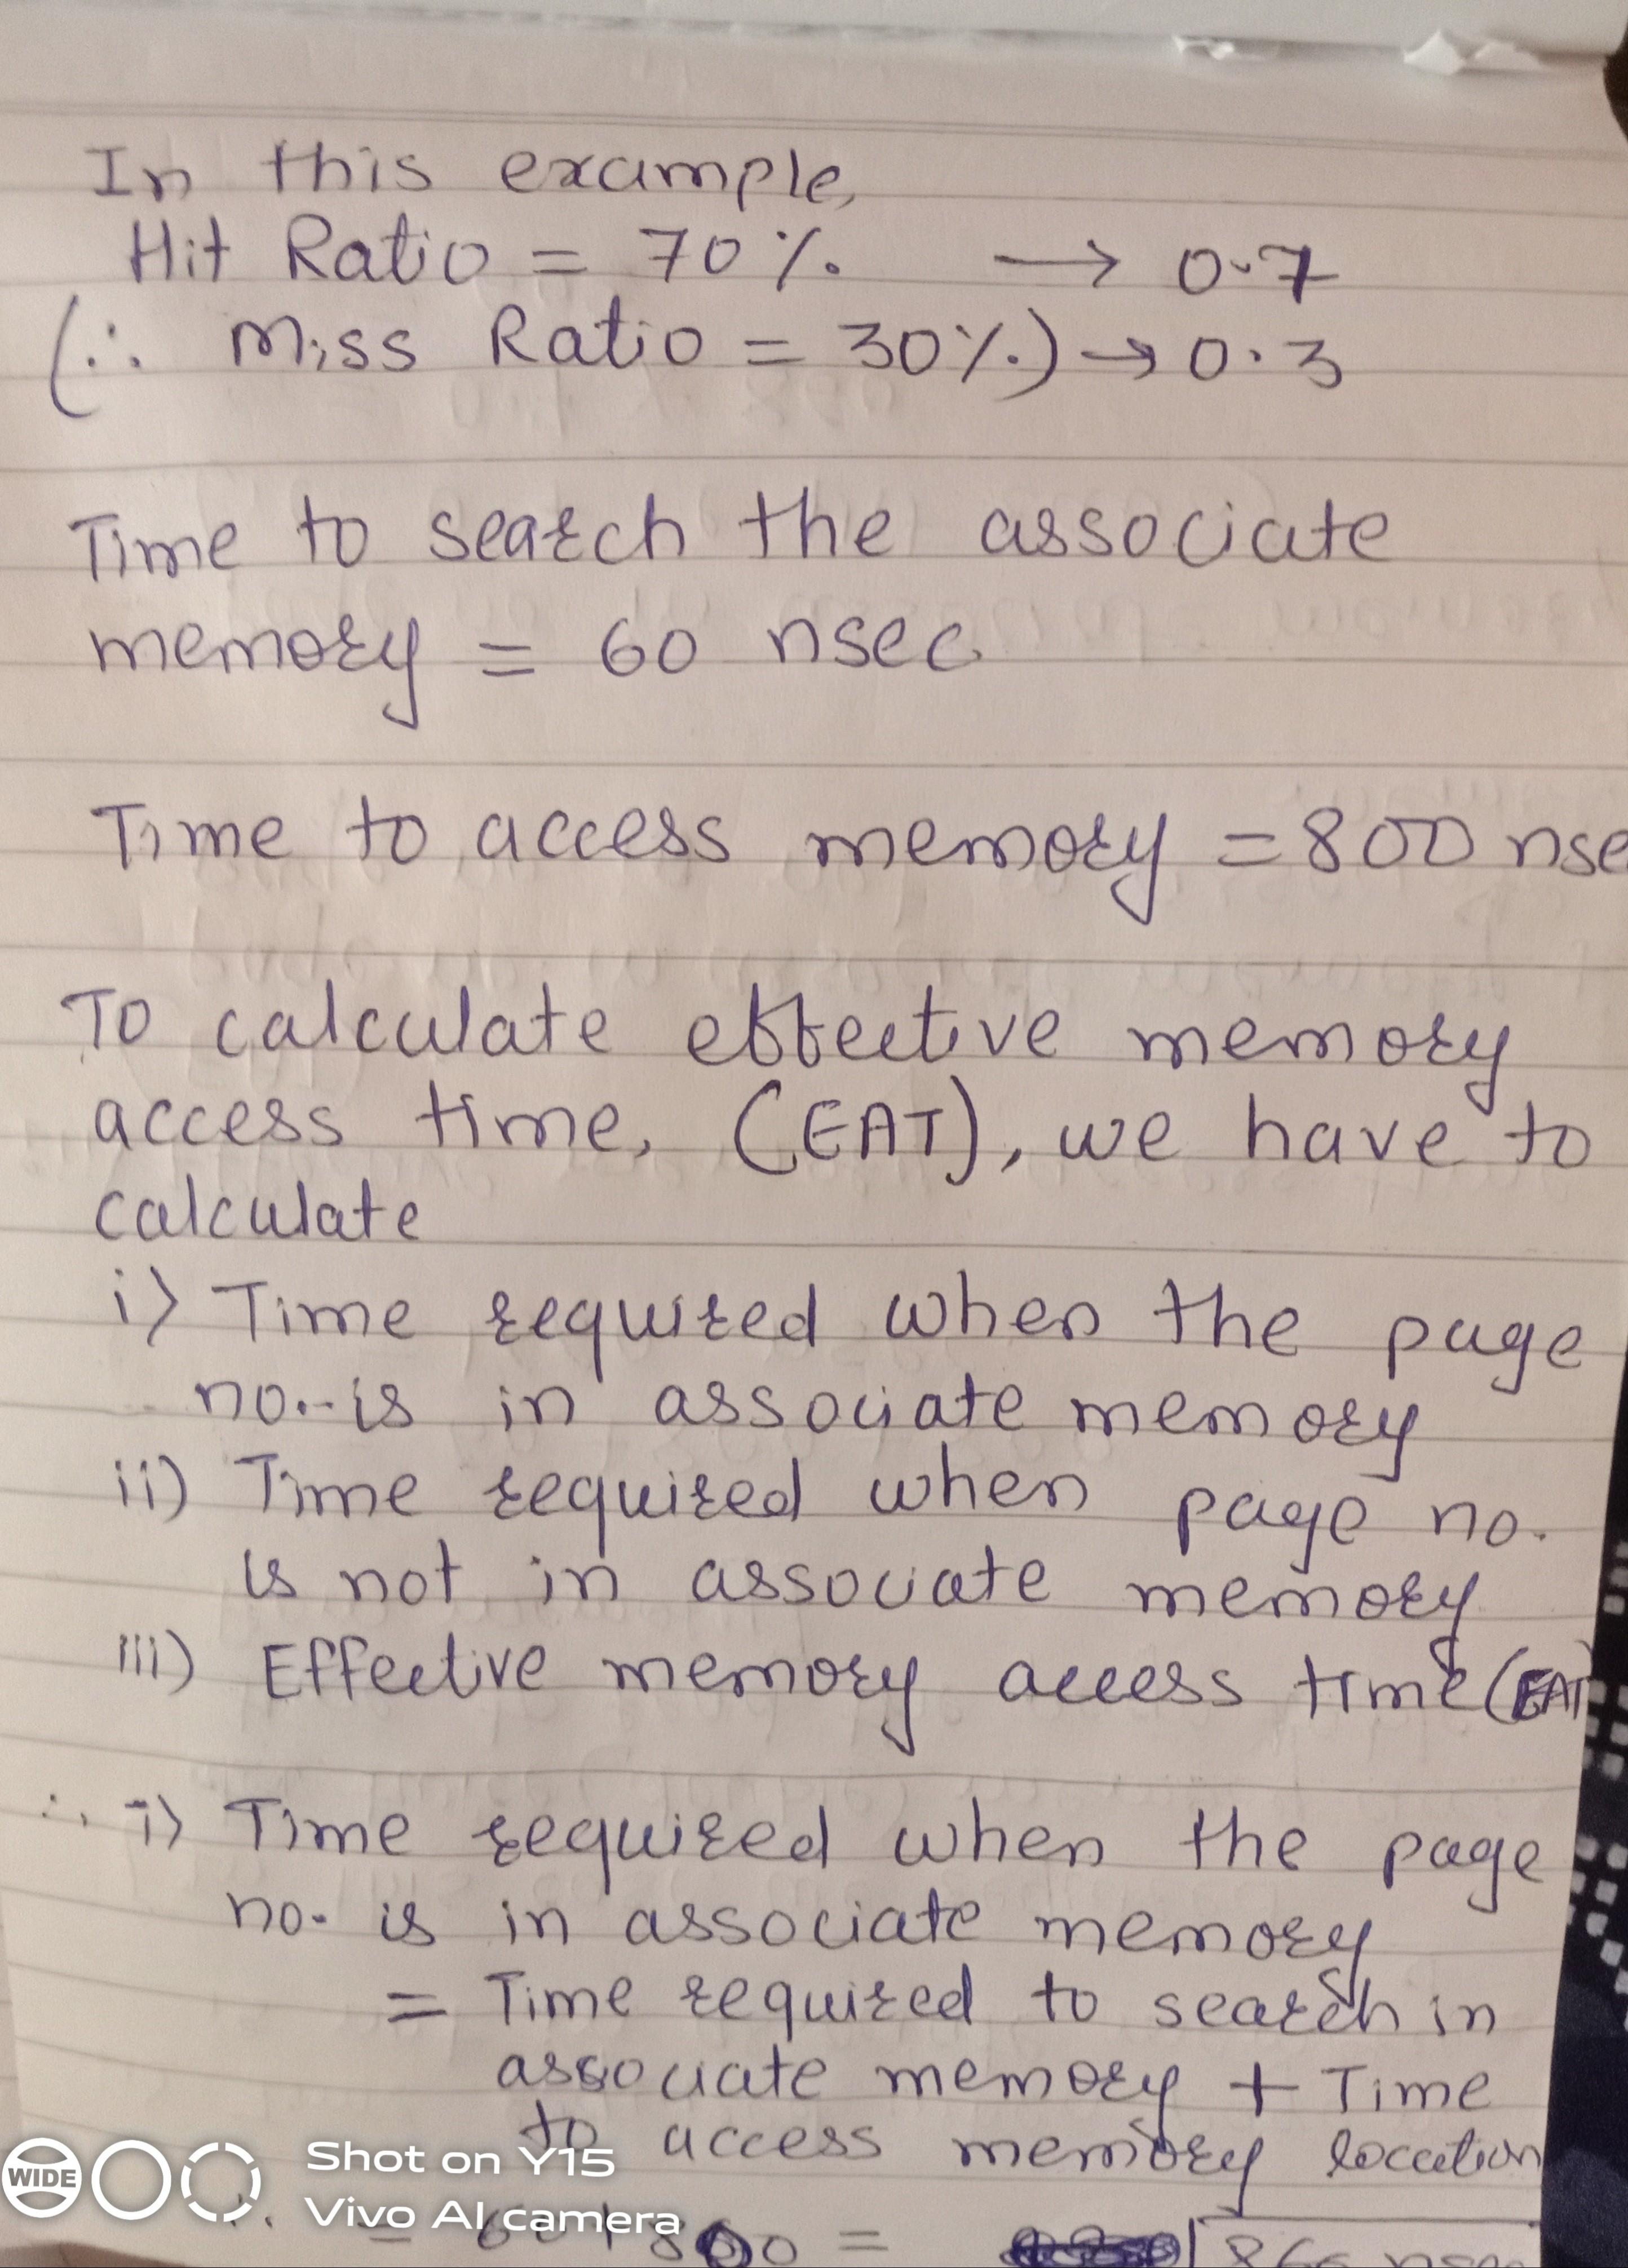 In this example,
Hit Ratio = 70% → 0.7
(∴ Miss Ratio = 30%) → 0.3
Time to search the associate
memory = 60 nsec
Time to access memory = 800 nse
To calculate effective memory
access time, (EAT), we have to
calculate
i) Time required when the page
no. is in associate memory
ii) Time required when page no.
is not in associate memory
iii) Effective memory access time (EAT)
∴ i) Time required when the page
no. is in associate memory
= Time required to search in
associate memory + Time
to access memory location
= 60+800 = 860 nsec
WIDE
Shot on Y15
Vivo AI camera